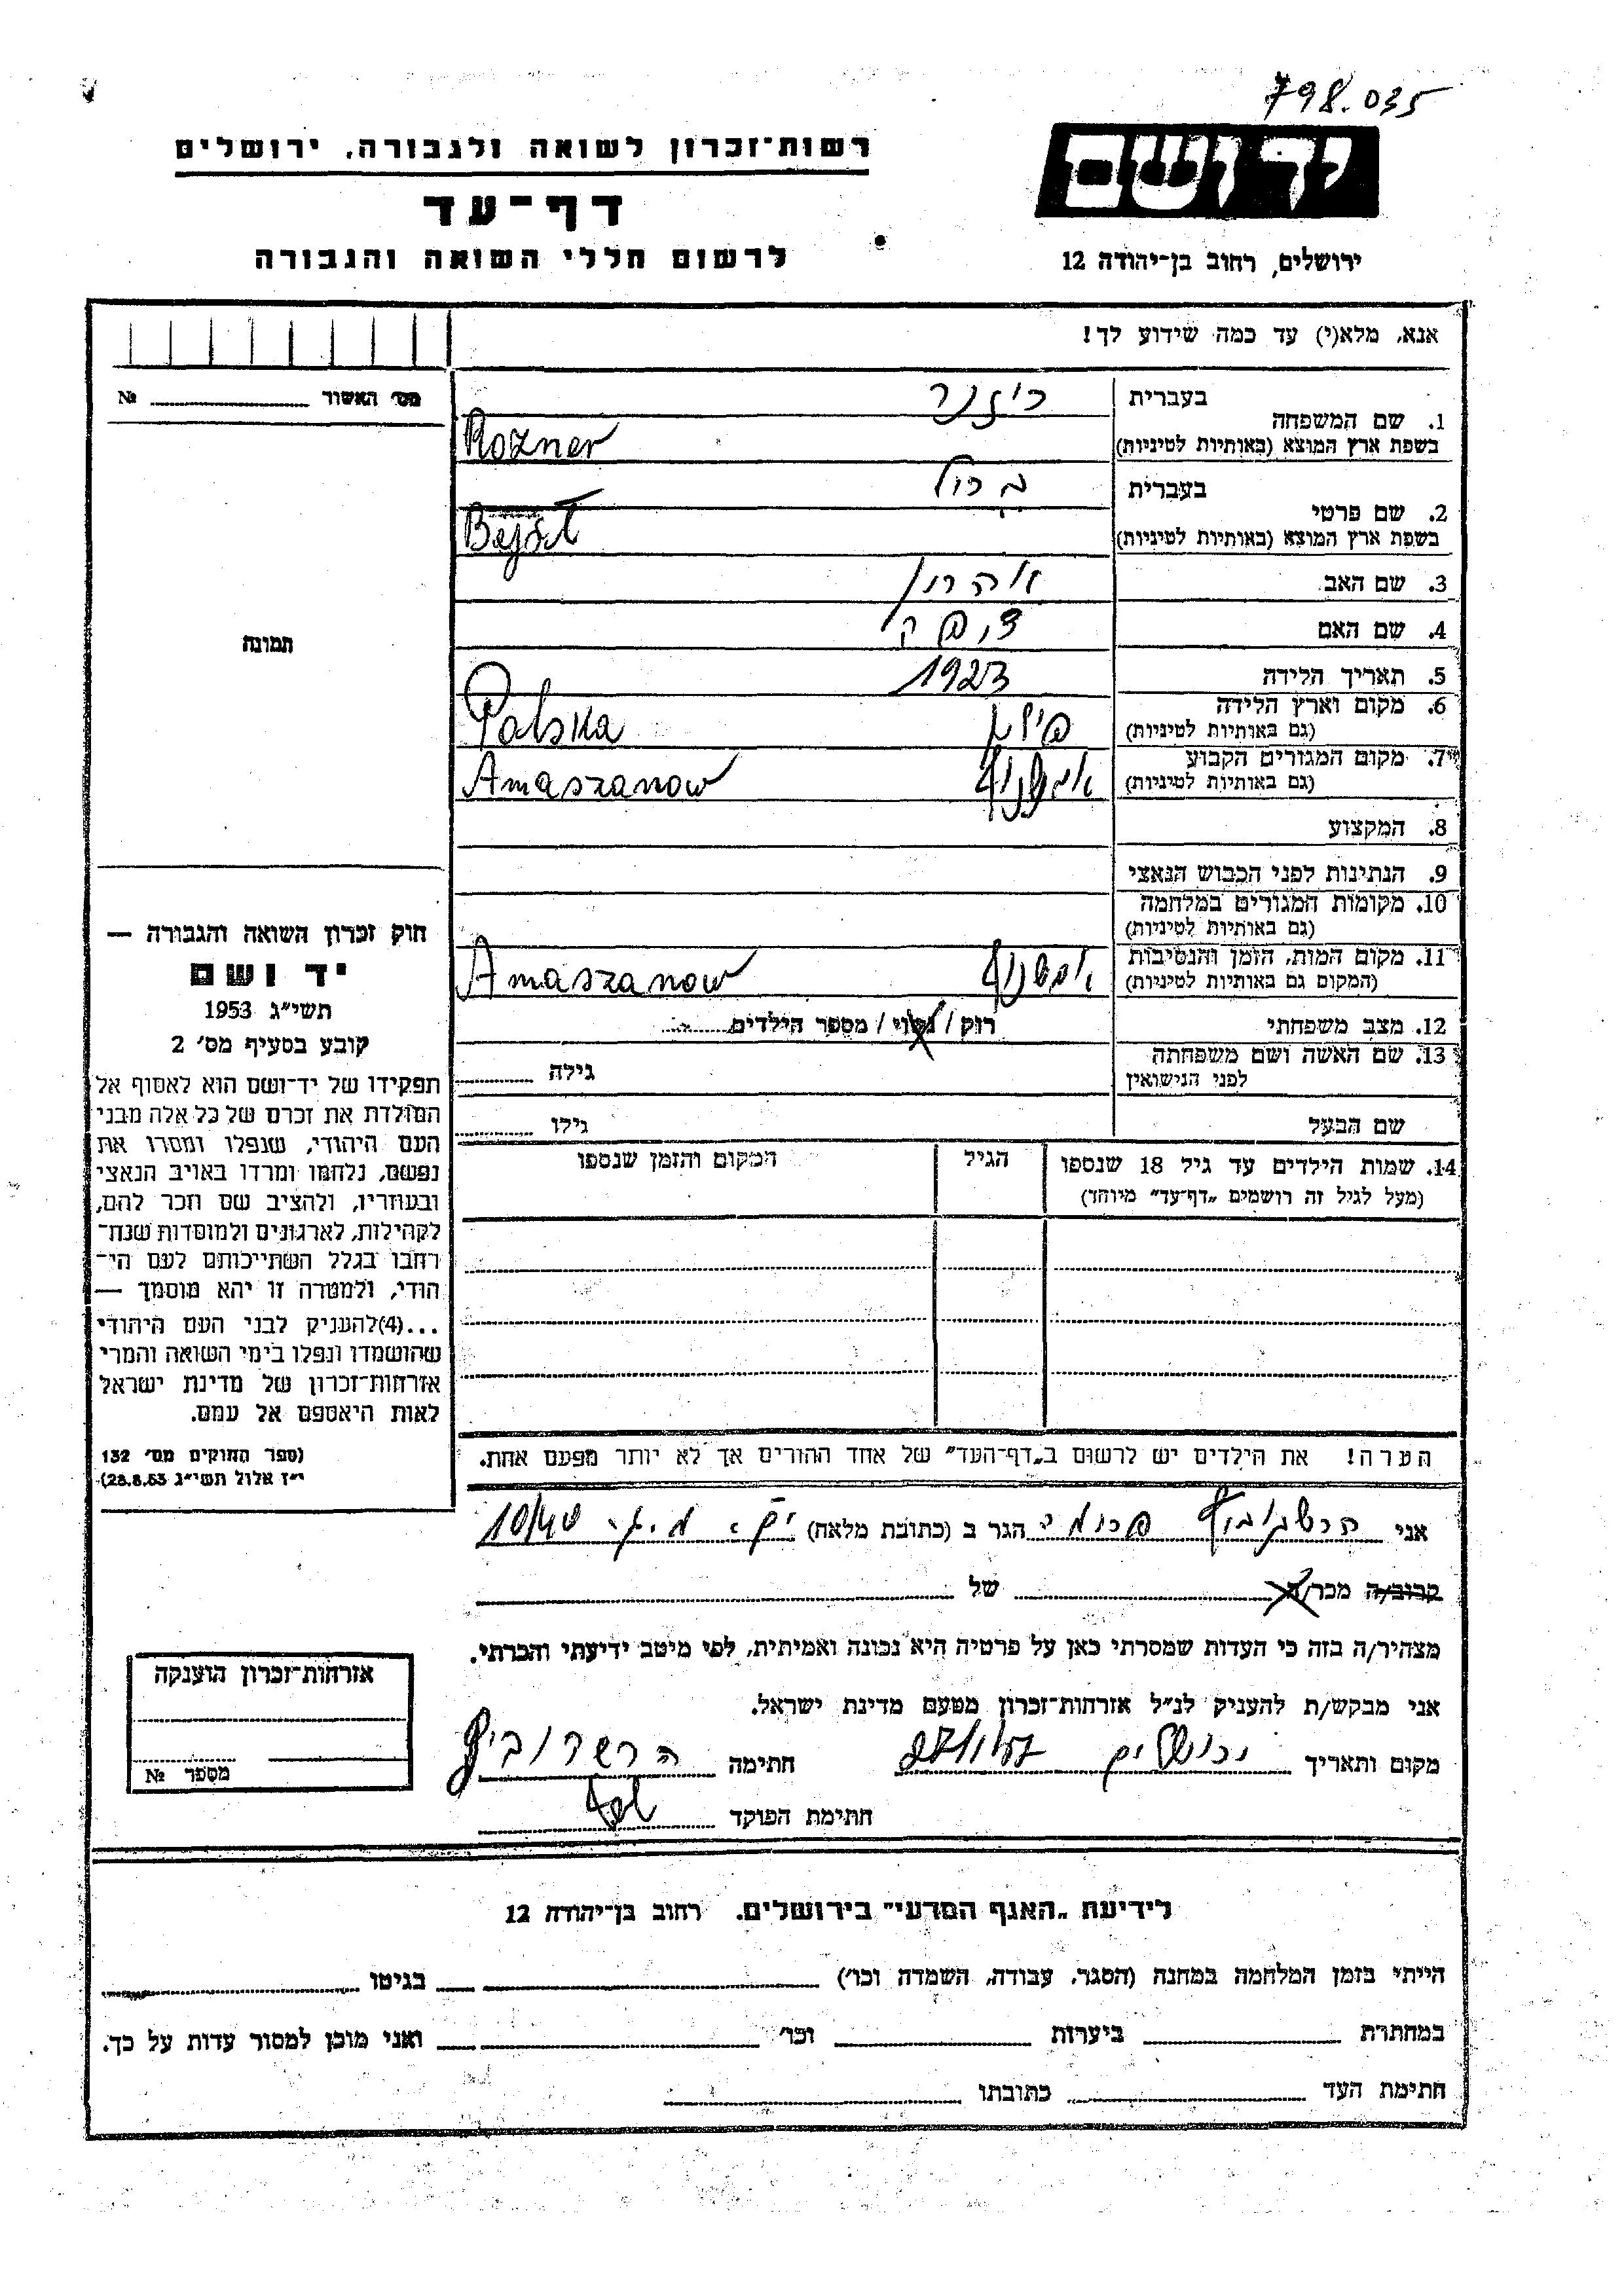 798.035
יד ושם
ירושלים, רחוב בן־יהודה 12
רשות־זכרון לשואה ולגבורה, ירושלים
דף־עד
לרשום חללי השואה והגבורה
אנא, מלא(י) עד כמה שידוע לך!
מס׳ האשור № 
תמונה
1. שם המשפחה בעברית רוזנר
בשפת ארץ המוצא (באותיות לטיניות) Rozner
2. שם פרטי בעברית
בשפת ארץ המוצא (באותיות לטיניות)
3. שם האב אהרון
4. שם האם
5. תאריך הלידה 1923
6. מקום וארץ הלידה
(גם באותיות לטיניות) פולין Polska
7. מקום המגורים הקבוע
(גם באותיות לטיניות) Amaszanow
8. המקצוע
9. הנתינות לפני הכבוש הנאצי
10. מקומות המגורים במלחמה
(גם באותיות לטיניות)
11. מקום המות, הזמן והנסיבות
(המקום גם באותיות לטיניות) Amaszanow
12. מצב משפחתי רוק / נשוי / מספר הילדים
13. שם האשה ושם משפחתה
לפני הנישואין גילה
שם הבעל גילו
14. שמות הילדים עד גיל 18 שנספו הגיל המקום והזמן שנספו
(מעל לגיל זה רושמים „דף־עד” מיוחד)
הערה! את הילדים יש לרשום ב„דף־העד” של אחד ההורים אך לא יותר מפעם אחת.
חוק זכרון השואה והגבורה —
יד ושם
תשי״ג 1953
קובע בסעיף מס׳ 2
תפקידו של יד־ושם הוא לאסוף אל
המולדת את זכרם של כל אלה מבני
העם היהודי, שנפלו ומסרו את
נפשם, נלחמו ומרדו באויב הנאצי
ובעוזריו, ולהציב שם וזכר להם,
לקהילות, לארגונים ולמוסדות שנח־
רבו בגלל השתייכותם לעם הי־
הודי, ולמטרה זו יהא מוסמך —
...(4)להעניק לבני העם היהודי
שהושמדו ונפלו בימי השואה והמרי
אזרחות־זכרון של מדינת ישראל
לאות היאספם אל עמם.
(ספר החוקים מס׳ 132
י״ז אלול תשי״ג 28.8.53)
אני הגר ב (כתובת מלאה) 10/40
קרוב/ה מכר/ה של
מצהיר/ה בזה כי העדות שמסרתי כאן על פרטיה היא נכונה ואמיתית, לפי מיטב ידיעתי והכרתי.
אני מבקש/ת להעניק לנ״ל אזרחות־זכרון מטעם מדינת ישראל.
מקום ותאריך ירושלים חתימה
חתימת הפוקד
אזרחות־זכרון הוענקה
מספר №
לידיעת „האגף המדעי” בירושלים. רחוב בן־יהודה 12
הייתי בזמן המלחמה במחנה (הסגר, עבודה, השמדה וכו׳) בגיטו
במחתרת ביערות וכו׳ ואני מוכן למסור עדות על כך.
חתימת העד כתובתו